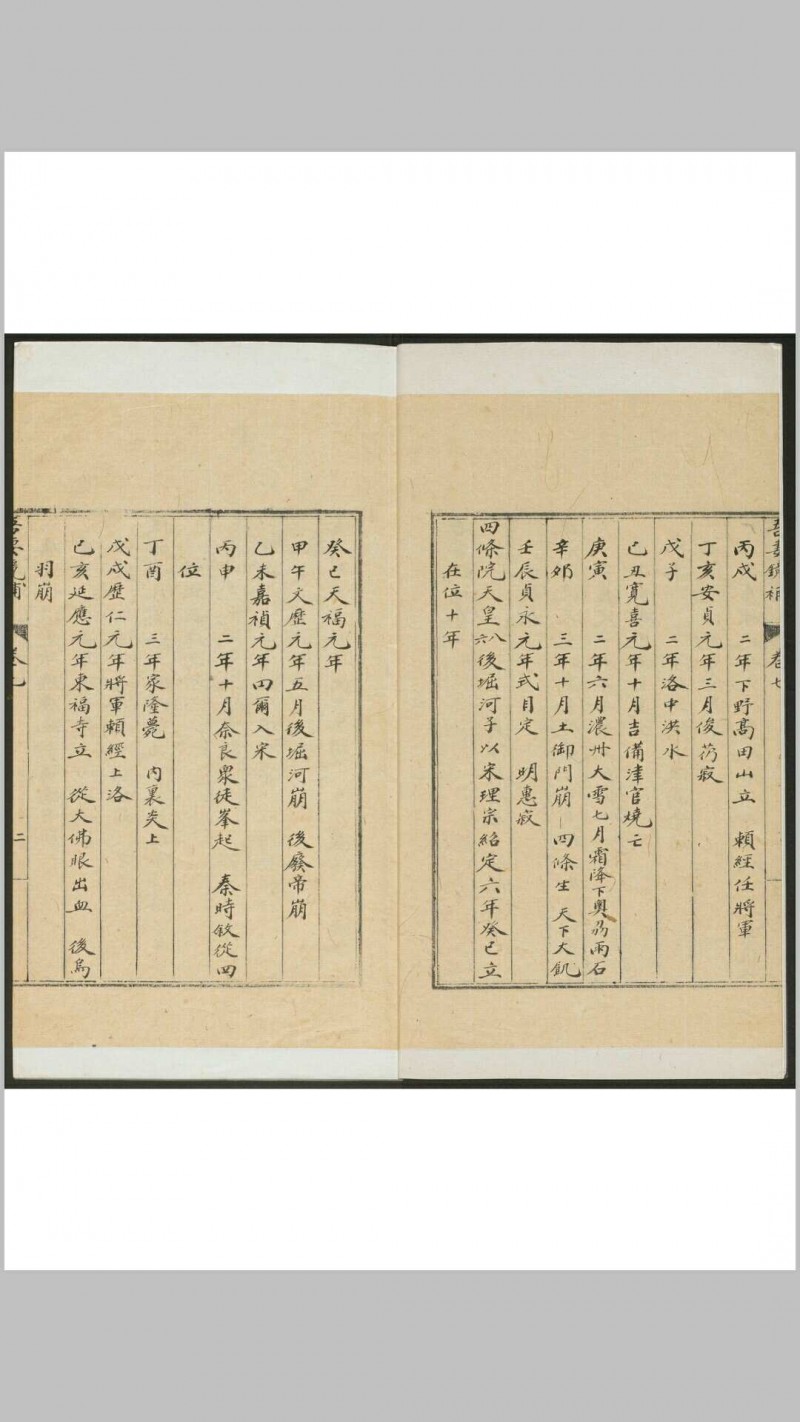 吾妻鏡補 卷七 一
丙戌 二年下野高田山立 賴經任將軍
丁亥安貞元年三月俊芿寂
戊子 二年洛中洪水
己丑寬喜元年十月吉備津宮燒亡
庚寅 二年六月濃州大雪七月霜降下奧芴雨石
辛卯 三年十月土御門崩 四條生 天下大飢
壬辰貞永元年式目定 明惠寂
四條院天皇八六後堀河子以宋理宗紹定六年癸巳立
在位十年
癸巳天福元年
甲午文歷元年五月後堀河崩 後廢帝崩
乙未嘉禎元年四爾入宋
丙申 二年十月奈良眾徒峯起 秦時敘從四
位
丁酉 三年家隆薨 內裏炎上
戊戌歷仁元年將軍賴經上洛
己亥延應元年東福寺立 從大佛眼出血 後鳥
羽崩
吾妻鏡補 卷七 二